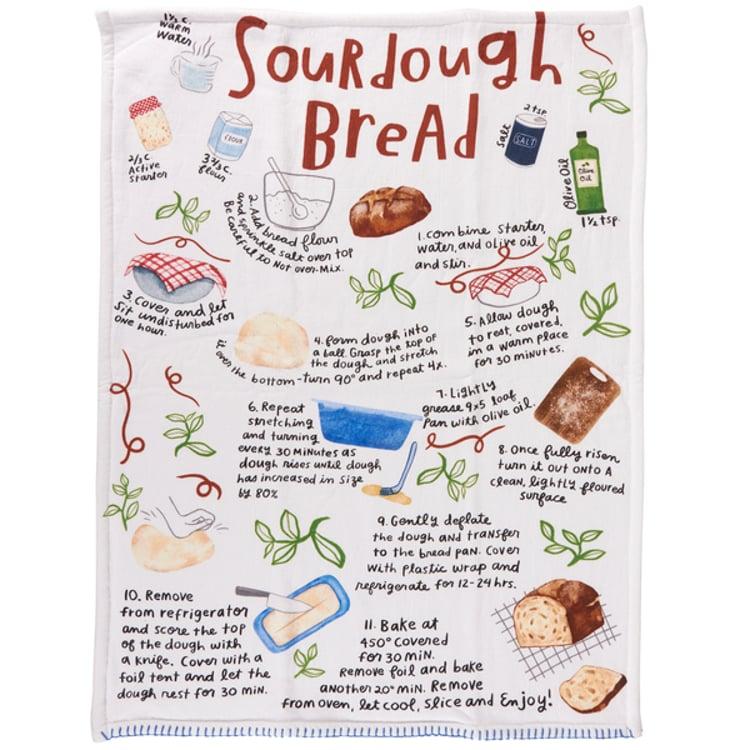 Sourdough
Bread
1½ c.
warm
water
2/3 c.
Active
Starter
FLOUR
3¾ c.
flour
Salt
2 tsp
SALT
Olive Oil
Olive
Oil
1½ tsp.
1. Combine starter,
water, and olive oil
and stir.
2. Add bread flour
and sprinkle salt over top
Be careful to Not over-Mix.
3. Cover and let
Sit undisturbed for
one hour.
4. Form dough into
a ball. Grasp the top of
the dough and stretch
it over the bottom-turn 90° and repeat 4x.
5. Allow dough
to rest, covered,
in a warm place
for 30 minutes.
6. Repeat
stretching
and turning
every 30 Minutes as
dough rises until dough
has increased in size
by 80%
7. Lightly
grease 9x5 loaf
Pan with olive oil.
8. Once fully risen
turn it out onto A
clean, lightly floured
surface
9. Gently deflate
the dough and transfer
to the bread pan. Cover
with plastic wrap and
refrigerate for 12-24 hrs.
10. Remove
from refrigerator
and score the top
of the dough with
a knife. Cover with a
foil tent and let the
dough rest for 30 min.
11. Bake at
450° Covered
for 30 min.
Remove foil and bake
another 20° min. Remove
from oven, let cool, slice and Enjoy!